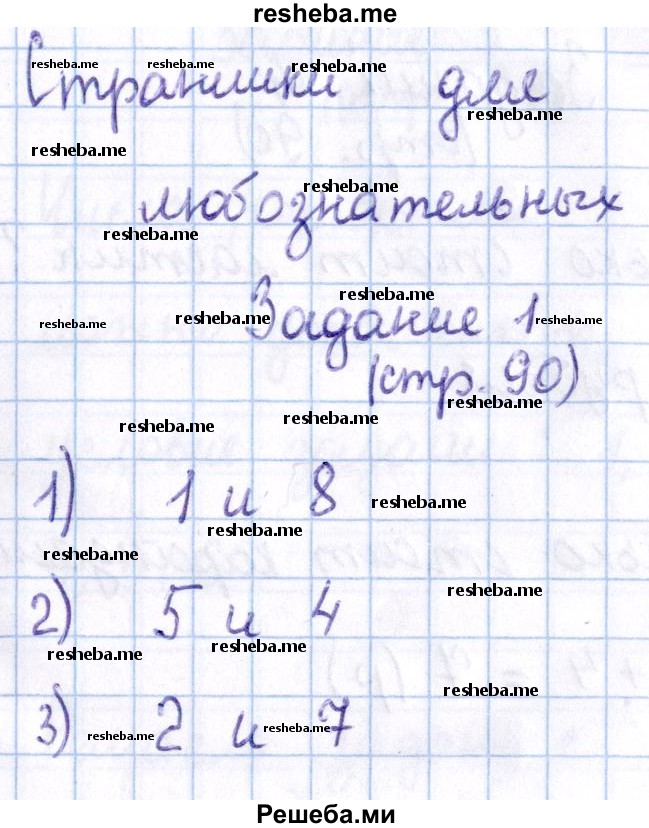 resheba.me
resheba.me resheba.me resheba.me
Странички для
resheba.me
resheba.me
resheba.me
любознательных
resheba.me
resheba.me
Задание 1
resheba.me resheba.me resheba.me
(стр. 90)
resheba.me
resheba.me
resheba.me
1) 1 и 8
resheba.me
resheba.me
resheba.me
resheba.me
2) 5 и 4
resheba.me
resheba.me
resheba.me
3) 2 и 7
resheba.me resheba.me
Решеба.ми